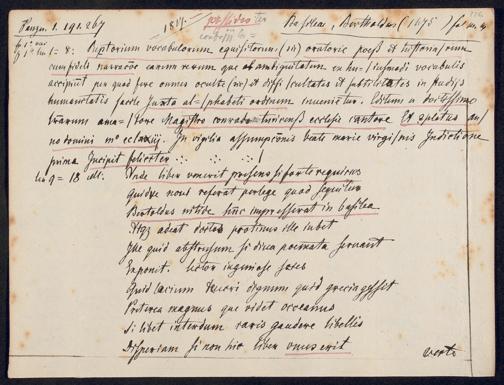 Panzer. 1. 191. 267
Basileae, Bertholdus (1475)
lin 1 = 8: Reptorium vocabulorum exquisitorum (in) oratorie poesis et historiarum
cum fideli narracōe earum rerum que ob ambiguitatem ex hu=/iusmodi vocabulis
accipiunt per quod fere omnes occulte et difficultates et subtilitates in studijs
humanitatis facile iuxta al=/phabeti ordinem inveniētur. Editum a doctissimo
literarum ama=/tore Magistro conrado turicensis ecclesie cantore Et completus an/
no domini mo cclxxiij. In vigilia assumpcionis beati marie virgi/nis Indictione
prima Incipit feliciter
lin 9 = 18 etc. Unde liber venerit presens si forte requiras
Quidve novi referat perlege quod sequitur
Bertoldus nitide hūc impresserat in basilea
Utqz adeat doctos protinus ille iubet
Ille quid abstrusum si diva poemata servant
Exponit. lector ingeniose scies
Quid lacium teucri dignum quid grecia gessit
Preterea magnus que videt occeanus
Si libet interdum raris gaudere libellis
Dispeream si non hic liber unus erit
verte